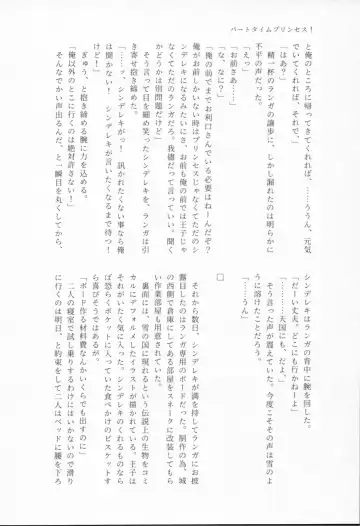 パートタイムプリンセス!
と俺のところに帰ってきてくれれば、……ううん、元気
でいてくれれば、それで、」
「はぁ?」
精一杯のランガの譲歩に、しかし漏れたのは明らかに
不平の声だった。
「お前さぁ……」
「俺の前までお利口さんでいる必要はねーんだぞ?
俺がお前しかいたい時はプリンセスじゃなくてただのシ
ンデレキになるみたいにさ、お前も俺の前では王子じゃ
なくてただのランガだろ。我儘だって言っていい。聞く
かどうかは別問題だけど」
そう言って目を細め笑ったシンデレキを、ランガは引
き寄せ抱き締めた。
「……ッ、シンデレキがっ! 訊かれたくない事なら俺
は聞かない! シンデレキが言いたくなるまで待つ!
けど!」
ぎゅう、と抱き締める腕に力を込める。
「俺以外のとこに行くのは絶対許さない!」
そんなでかい声出るんだ、と一瞬目を丸くしてから、
シンデレキはランガの背中に腕を回した。
「だー丈夫。どこにも行かねーよ」
「……天国にも、だよ。」
そう言った声が震えていた。今度こそその声は雪のよ
うに溶けたことだろう。
「……うん」
□
それから数日、シンデレキが満を持してランガにお披
露目したのはランガ専用のボードだった。制作の為、城
の西側で倉庫にしてある部屋をスネークに改装してもら
い作業部屋も用意されていた。
裏面には、雪の国に現れるという伝説上の生物をコミ
カルにデフォルメしたイラストが描かれている。王子は
それがいたく気に入った。シンデレキのくれるものなら
ば恐らくポケットに入っていた食べかけのビスケットす
ら喜びそうではあるが。
「ボード作る材料費なんかいくらでも出すのに」
二人の寝室で試し乗りするわけにはいかないので滑り
に行くのは明日、と約束をして二人はベッドに腰を下ろ